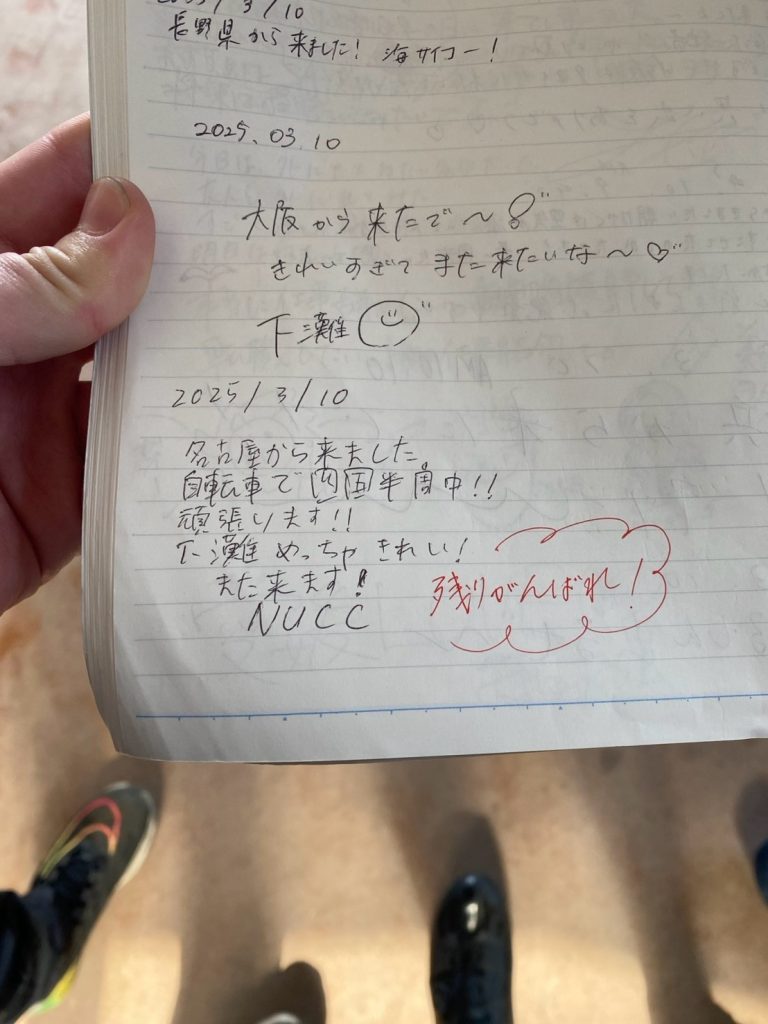 2025/3/10
長野県から来ました! 海サイコー!
2025.03.10
大阪から来たで〜!
きれいすぎて また来たいな〜♡
下灘
2025/3/10
名古屋から来ました。
自転車で四国半周中!!
頑張ります!!
下灘めっちゃきれい!
また来ます!
NUCC
残りがんばれ!